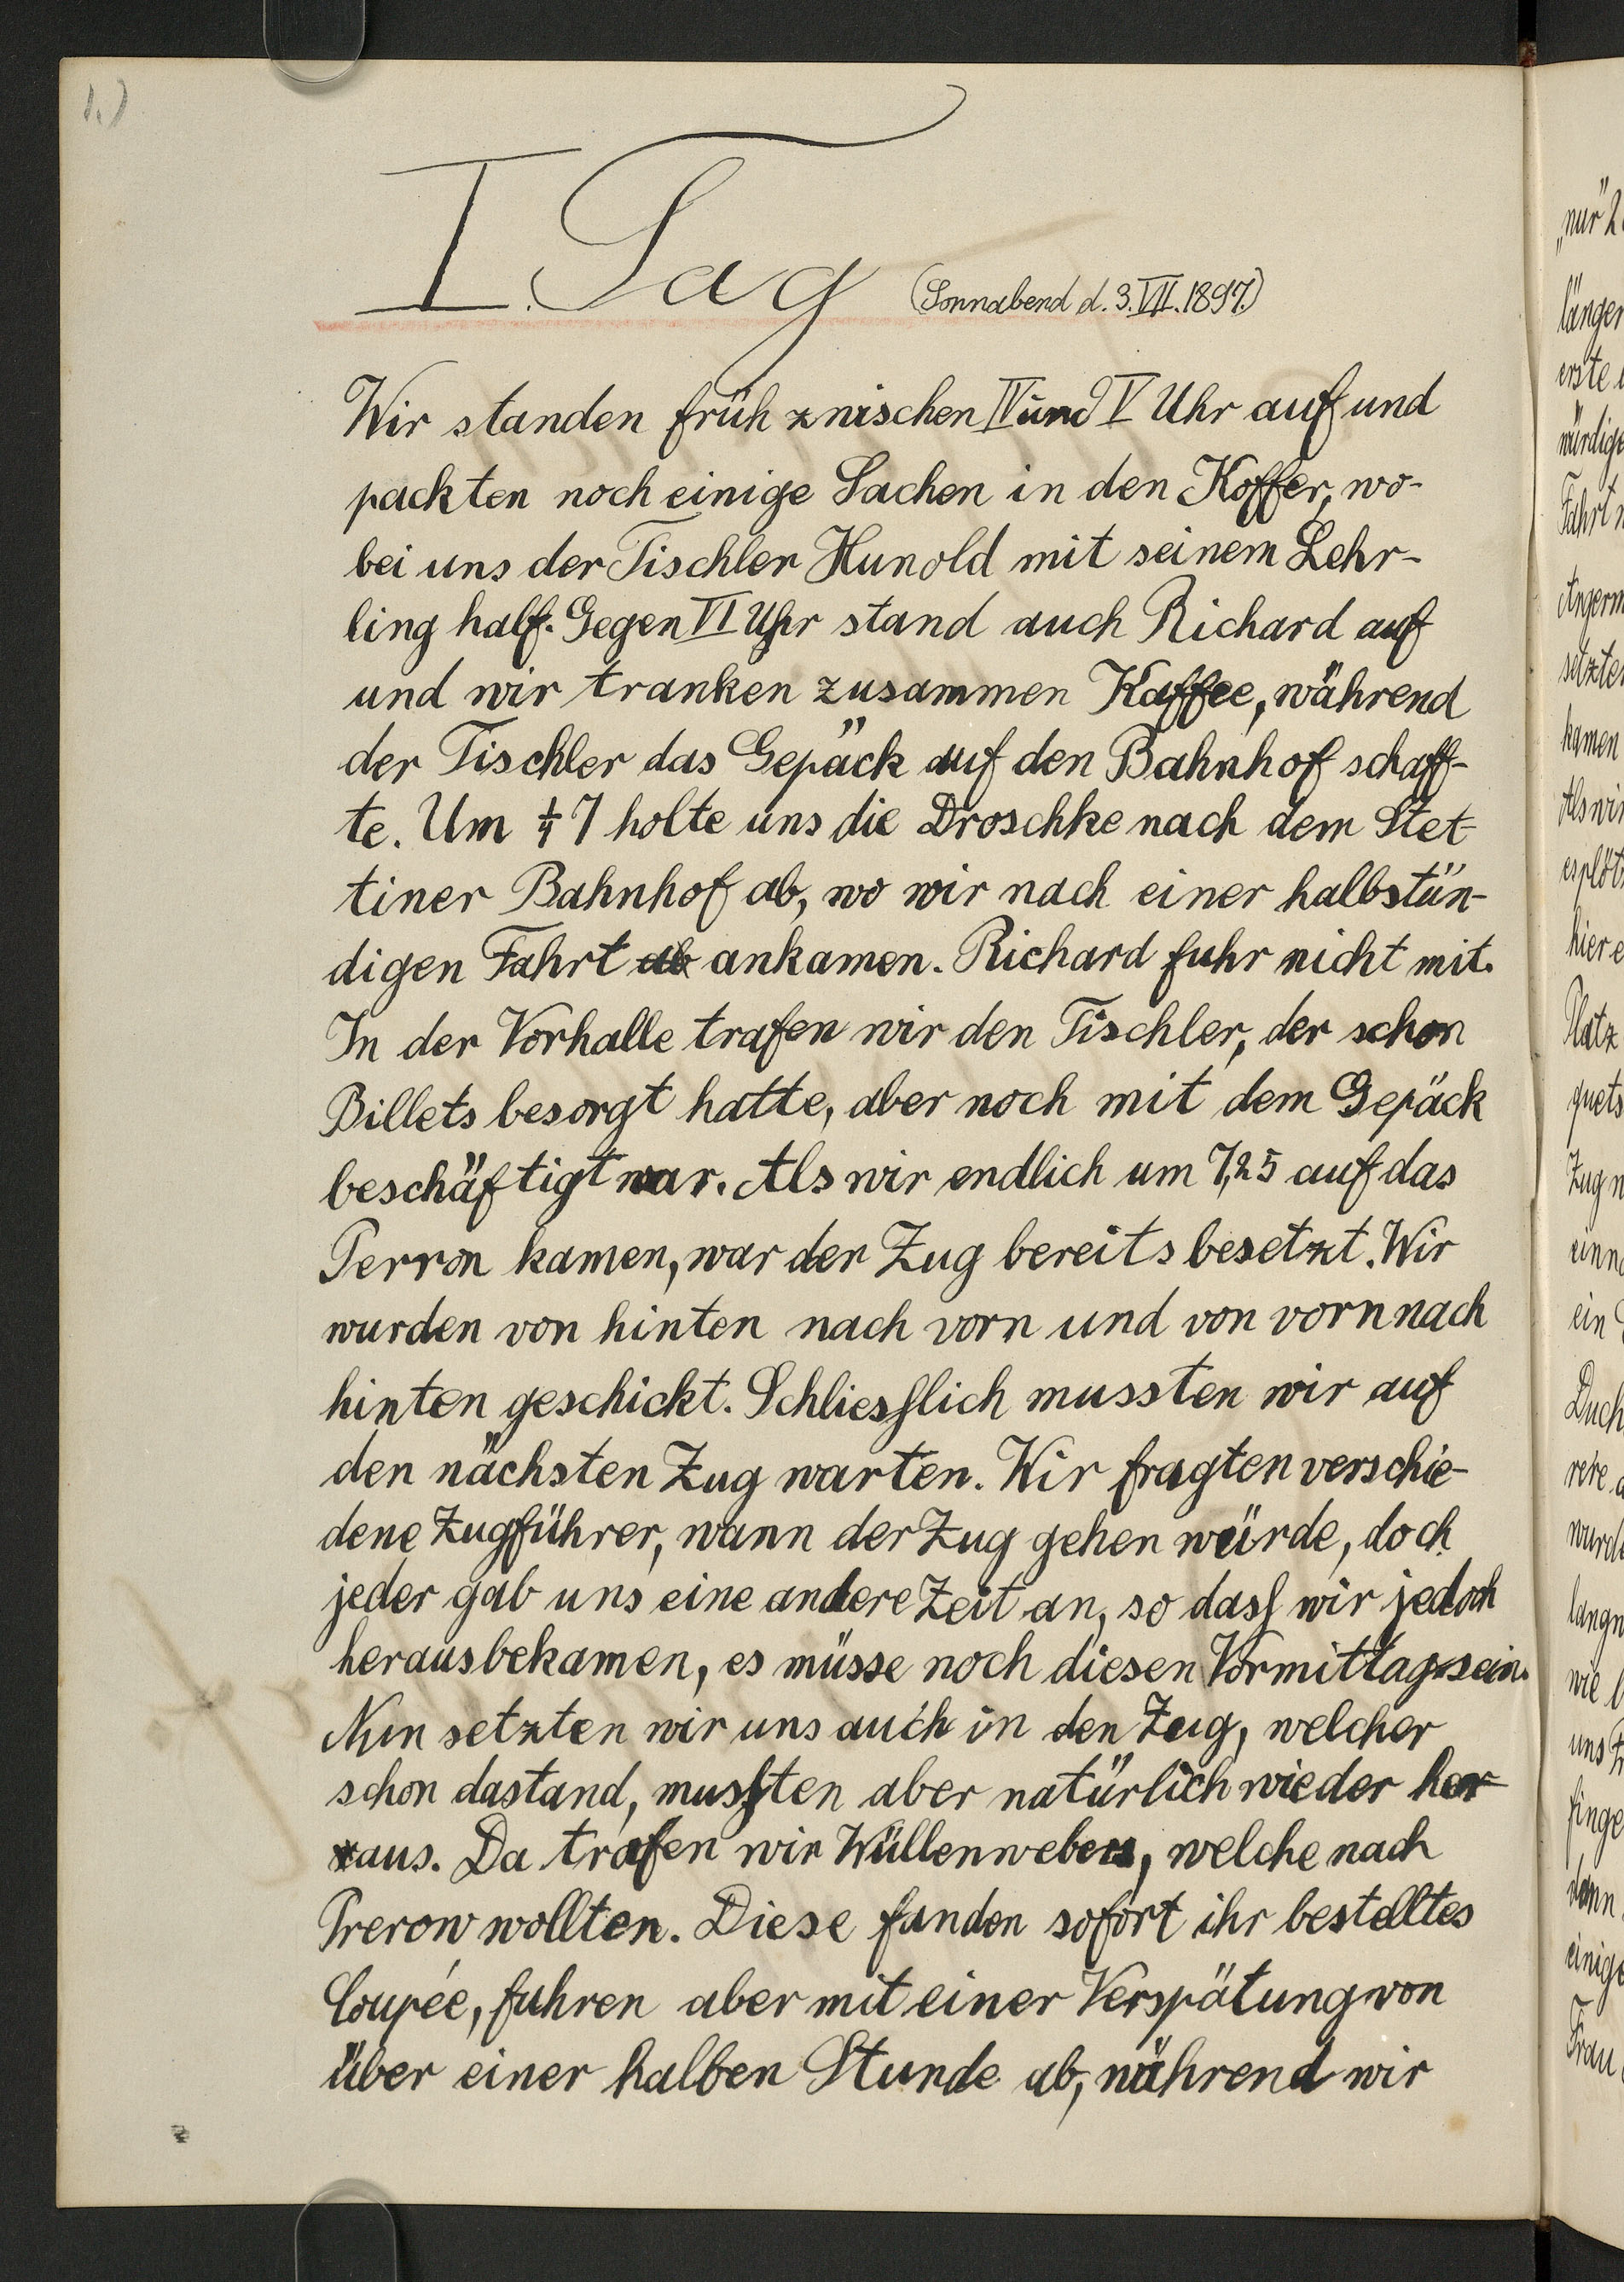 1.)
I. Tag (Sonnabend d. 3. VII. 1897.)
Wir standen früh zwischen IV und V Uhr auf und
packten noch einige Sachen in den Koffer, wo-
bei uns der Tischler Hunold mit seinem Lehr-
ling half. Gegen VI Uhr stand auch Richard auf
und wir tranken zusammen Kaffee, während
der Tischler das Gepäck auf den Bahnhof schaff-
te. Um ¼ 7 holte uns die Droschke nach dem Stet-
tiner Bahnhof ab, wo wir nach einer halbstün-
digen Fahrt ab ankamen. Richard fuhr nicht mit.
In der Vorhalle trafen wir den Tischler, der schon
Billets besorgt hatte, aber noch mit dem Gepäck
beschäftigt war. Als wir endlich um 7,25 auf das
Perron kamen, war der Zug bereits besetzt. Wir
wurden von hinten nach vorn und von vorn nach
hinten geschickt. Schliesſlich mussten wir auf
den nächsten Zug warten. Wir fragten verschie-
dene Zugführer, wann der Zug gehen würde, doch
jeder gab uns eine andere Zeit an, so dasſ wir jedoch
herausbekamen, es müsse noch diesen Vormittag sein.
Nun setzten wir uns auch in den Zug, welcher
schon dastand, musſten aber natürlich wieder her-
aus. Da trafen wir Wüllenwebers, welche nach
Prerow wollten. Diese fanden sofort ihr bestelltes
Coupée, fuhren aber mit einer Verspätung von
über einer halben Stunde ab, während wir
„nur"
länger
erste
würdige
Fahrt
Angerm
setzten
kamen
Als wir
es plöt
hier
Platz
quets
Zug
einn
ein
Duch
rere
wurde
langn
wie
uns
finge
dann
einige
Frau